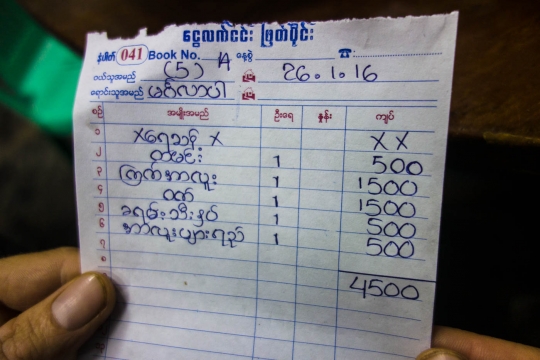 ငွေလက်ငင်း ဖြတ်ပိုင်း
နံပါတ် 041 Book No. 1A နေ့စွဲ ☎:
ဝယ်သူအမည် (5) 26.1.16
ရောင်းသူအမည် မင်္ဂလာပါ
စဉ် အမျိုးအမည် ဦးရေ နှုန်း ကျပ်
၁ x ရေသန့် x x x
၂ ထမင်း 1 500
၃ ကြက်အာလူး 1 1500
၄ ဝက် 1 1500
၅ ခရမ်းသီးနှပ် 1 500
၆ အာလူးပျားရည် 1 500
၇
၈ 4500